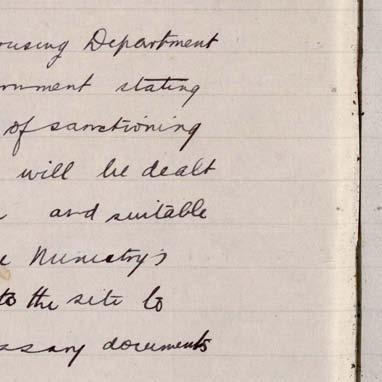 ousing Department
rnment stating
of sanctioning
will be dealt
and suitable
Ministry's
to the site to
ssary documents